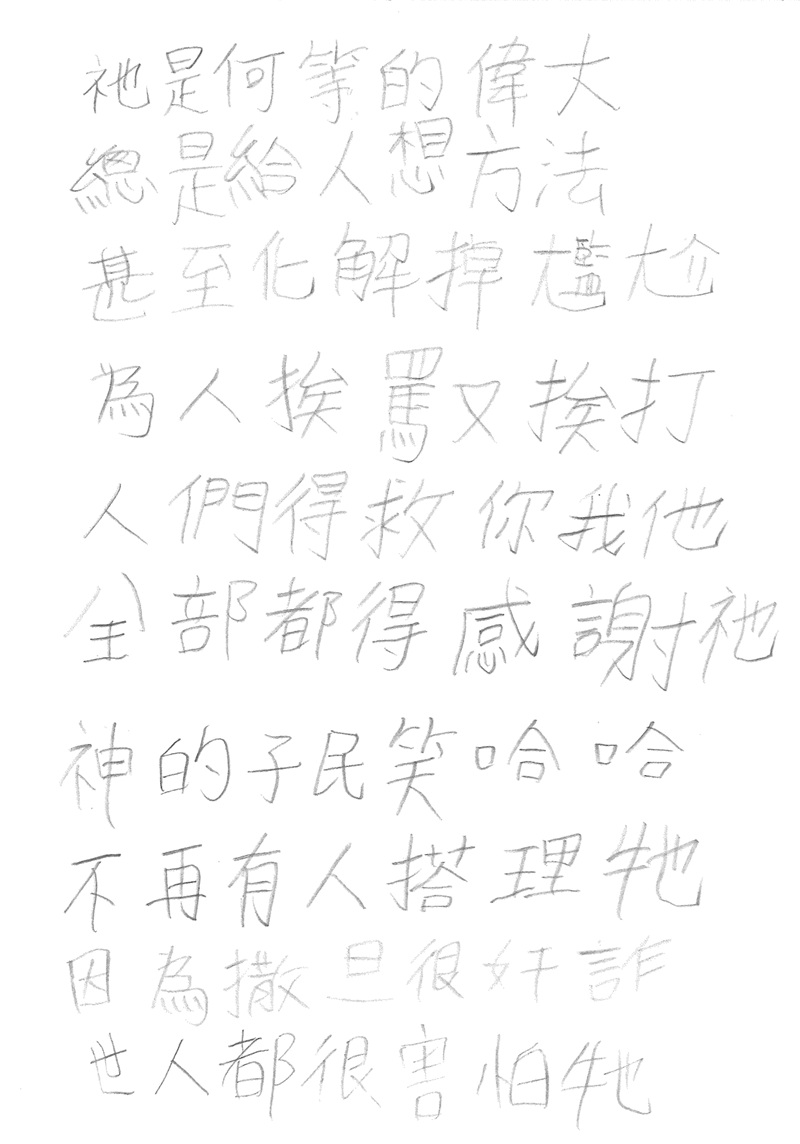 祂是何等的偉大
總是給人想方法
甚至化解掉尷尬
為人挨罵又挨打
人們得救你我他
全部都得感謝祂
神的子民笑哈哈
不再有人搭理牠
因為撒旦很奸詐
世人都很害怕牠